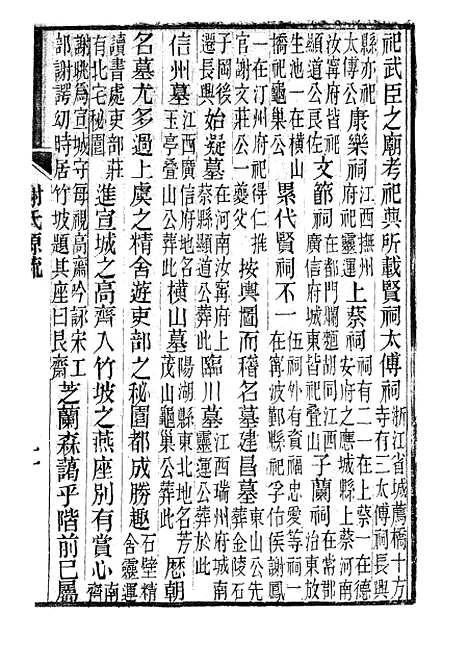 祀武臣之廟考祀典所載賢祠太傅祠浙江省城薦橋十方寺有二太傅祠長興
縣亦祀太傅公康樂祠江西撫州府祀靈運上蔡祠祠有二一在上蔡一在德安府應城縣上蔡河南
汝甯府皆祀顯道公良佐文節祠在都門爛麵胡同江西廣信府城東皆祀疊山子蘭祠在常郡沿東放
生池一在橫山橋祀龜巢公累代賢祠不一伍祠外有忠愛等祠一在甯波鄞縣祀孚佑侯謝鳳
一在汀州府祀得仁推官謝文莊公一夔父按輿圖而稽名墓建昌墓東山公先葬金陵石
子岡後遷長興始凝墓在河南汝甯府蔡縣顯道公葬此臨川墓江西瑞州府城南靈運公葬於此
信州墓江西廣信府地名玉亭疊山公葬此橫山墓陽湖縣東北地名芳茂山龜巢公葬此歷朝
名墓尤多過上虞之精舍遊吏部之秘園都成勝趣石壁精舍靈運
讀書處吏部莊有北宅秘園進宣城之高齊入竹坡之燕座別有賞心南齊
謝朓為宣城守每視高齋吟詠宋工部謝諤幼時居竹坡題其座曰艮齋芝蘭森藹乎階前已屬
謝氏源流